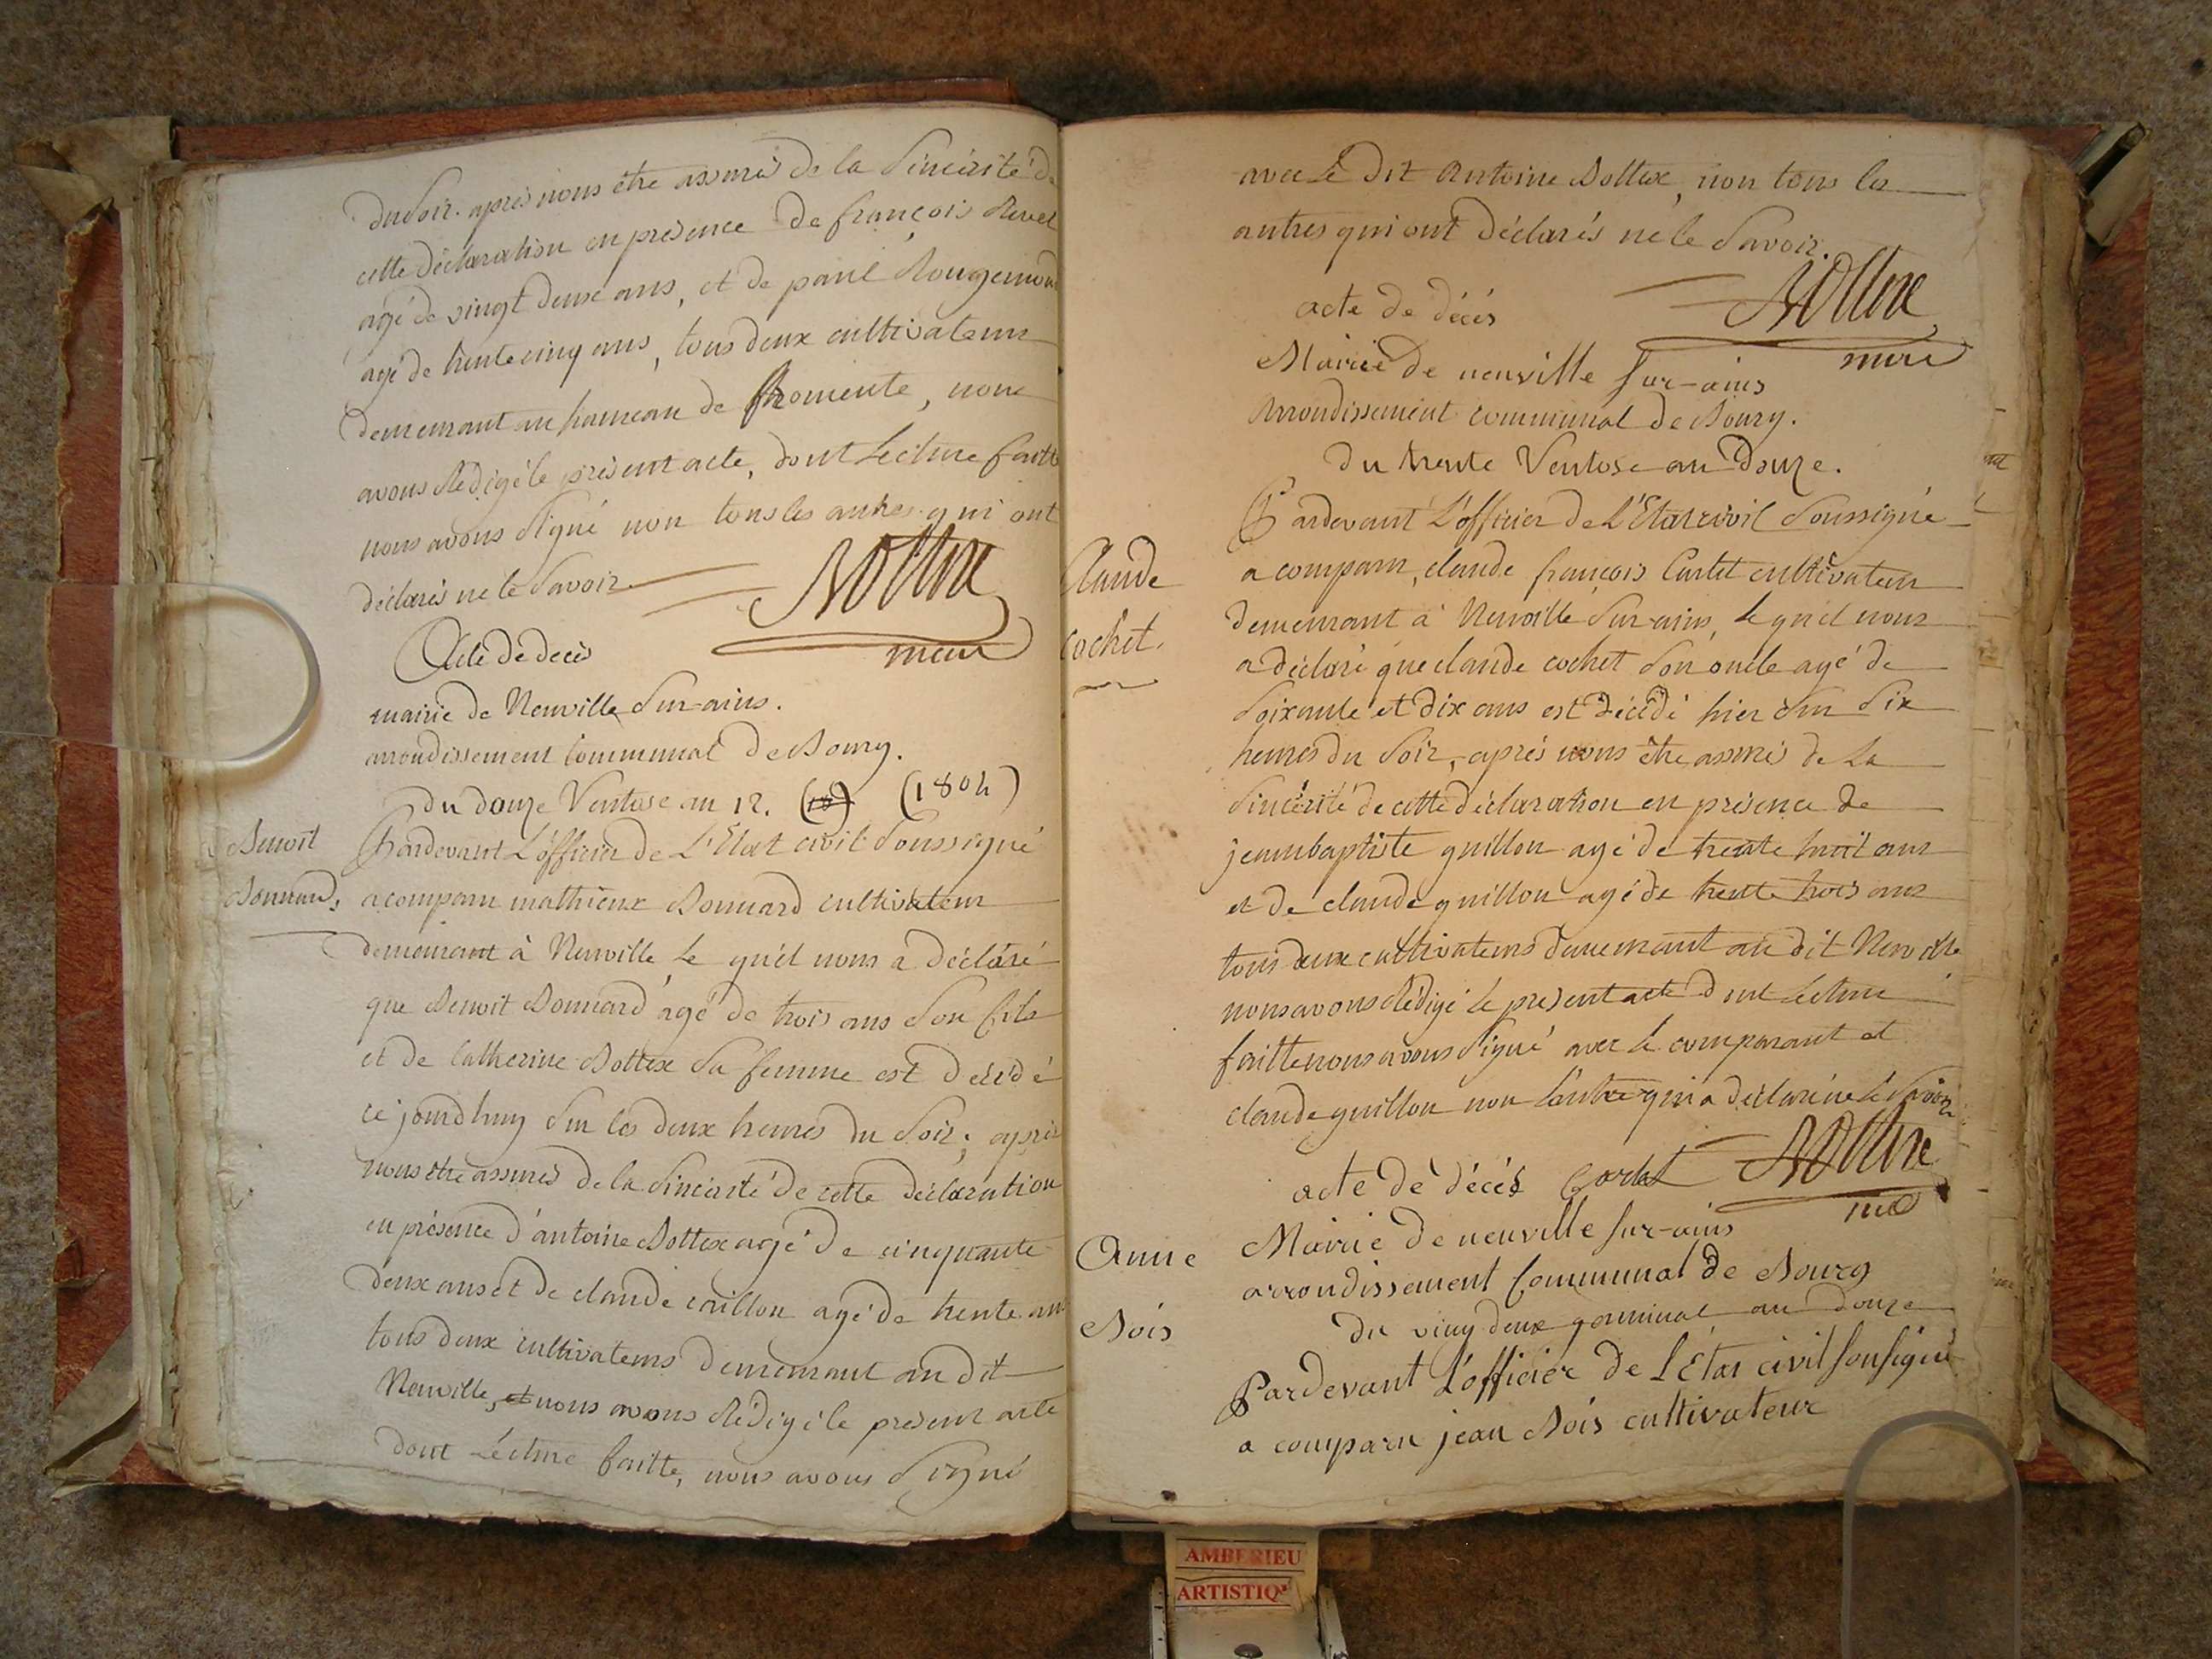 du Soir. après nous être assuré de la Sincérité de
cette déclaration en présence de françois Revel
agé de vingt deux ans, et de paul Rougemont
agé de trente cinq ans, tous deux cultivateurs
demeurant au hameau de fromente, nous
avons Rédigé le présent acte, dont Lecture faitte
nous avons Signé non tous les autres qui ont
déclarés ne le Savoir.
Bottex
maire
Acte de decès
mairie de Neuville Sur-ains.
arrondissement Communal de Bourg.
du douze Ventose an 12. (1804)
Benoit
Bonnard.
Pardevant L'officier de L'Etat civil Soussigné
a comparu mathieux Bonnard cultivateur
demeurant à Neuville, Le quél nous a déclaré
que Benoit Bonnard agé de trois ans Son fils
et de Catherine Bottex Sa femme est décédé
ce jourdhuy Sur les deux heures du Soir; après
nous être assurés de la Sincérité de cette déclaration
en présence d'antoine Bottex agé de cinquante
deux ans et de claude caillon agé de trente ans
tous deux cultivateurs demeurant au dit
Neuville, et nous avons Rédigé le présent acte
dont Lécture faitte, nous avons Signé
avec Le dit Antoine Bottex, non tous les
autres qui ont déclarés ne le Savoir.
Bottex
maire
acte de décés
Mairie de neuville sur-ains
Arrondissement communal de Bourg.
du trente Ventose an Douze.
Claude
Cochet.
Pardevant L'officier de L'Etat civil Soussigné
a comparu, claude françois Cartet cultivateur
demeurant à Neuville Sur-ains, Le quél nous
a déclaré que claude cochet Son oncle agé de
Soixante et dix ans est décédé hier Sur Six
heures du Soir, après nous être assurés de La
Sincérité de cette déclaration en présence de
jeanbaptiste guillon agé de trente huit ans
et de claude guillon agé de trente trois ans
tous deux cultivateurs demeurant au dit Neuville
nous avons Rédigé Le présent acte dont Lecture
faitte nous avons Signé avec le comparant et
claude guillon non l'autre qui a déclaré ne Le Savoir.
Cartet
Bottex
acte de décés
Mairie de neuville sur-ains
arrondissement Communal de Bourg
du ving deux germinal an douze
Anne
Bois
Pardevant L'officier de L'Etat civil sousigné
a comparu jean Bois cultivateur
AMBERIEU
ARTISTIQ